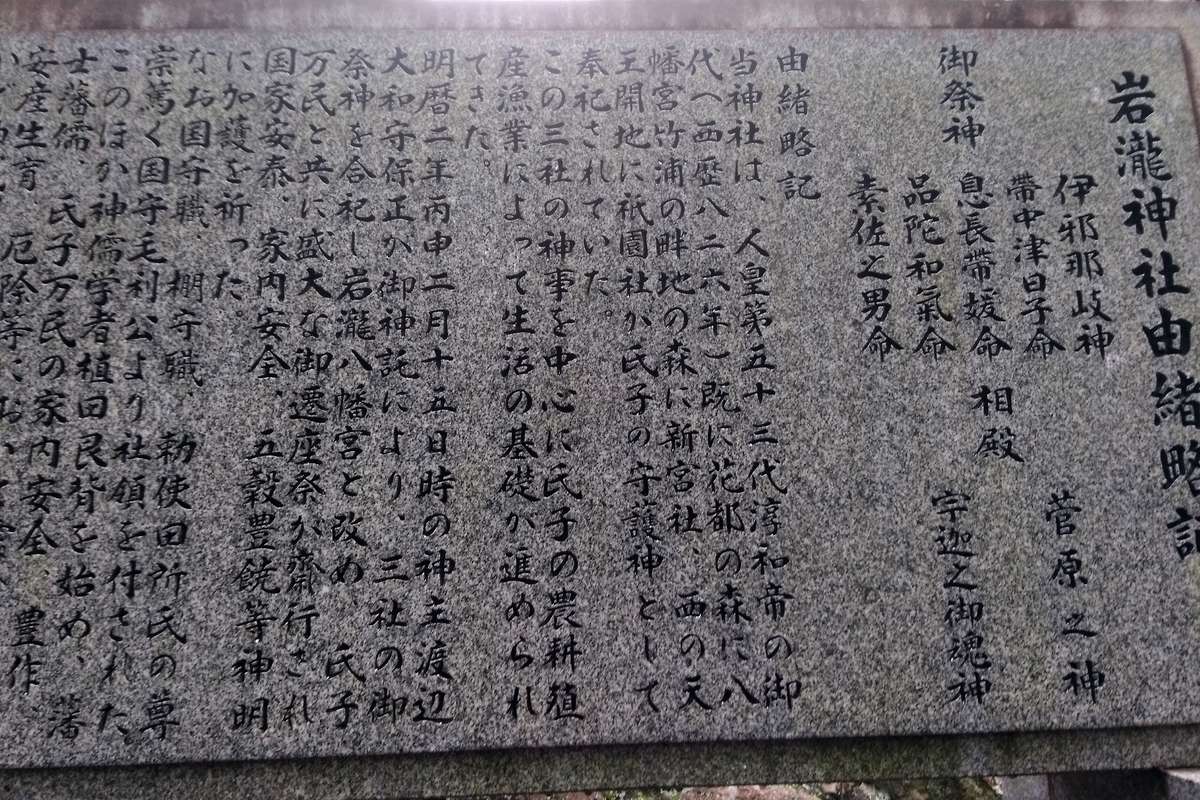 岩瀧神社由緒略記
伊邪那岐神
帶中津日子命
御祭神 息長帶媛命 相殿
品陀和氣命
素佐之男命
菅原之神
宇迦之御魂神
由緒略記
当神社は、人皇第五十三代淳和帝の御
代へ西歴八二六年一既に花都の森に八
幡宮竹浦の畔地の森に新宮社、西の天
王開地に祇園社が氏子の守護神として
奉祀されていた。
この三社の神事を中心に氏子の農耕殖
産漁業によって生活の基礎が進められ
てきた。
明暦二年丙申二月十五日時の神主渡辺
大和守保正が御神託により、三社の御
祭神を合祀し岩瀧八幡宮と改め、氏子
万民と共に盛大な御遷座祭が斎行され
国家安泰、家内安全、五穀豊饒等神明
に加護を祈った。
なお国守職、棚守職、勅使田所氏の尊
崇篤く国守毛利公より社領を付された
このほか神儒学者植田艮背を始め、藩
士藩儒、氏子万民の家内安全、豊作、
安産生育、厄除等において